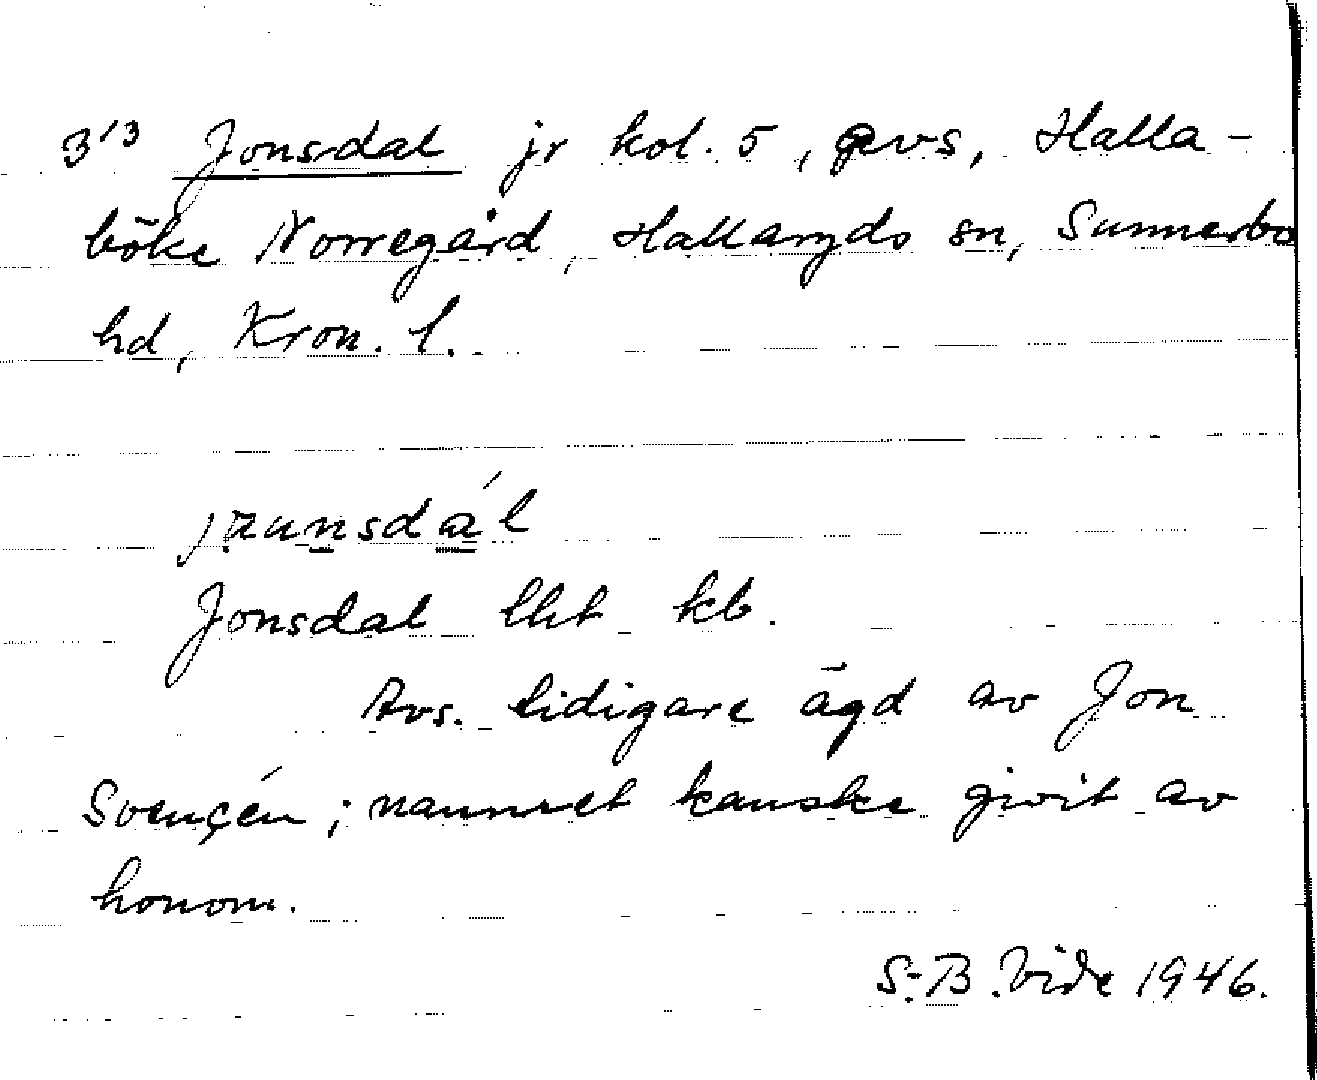 3'3 Jonsdal jr kol. 5, avs, Halla-
böke Norregård, Hallaryds sn, Sunnerbo
hd, Kron. l.
Jonsdal lht kb.
Avs. tidigare ägd av Jon
Svençén; namnet kanske givit av
honom.
S-B. Vide 1946.